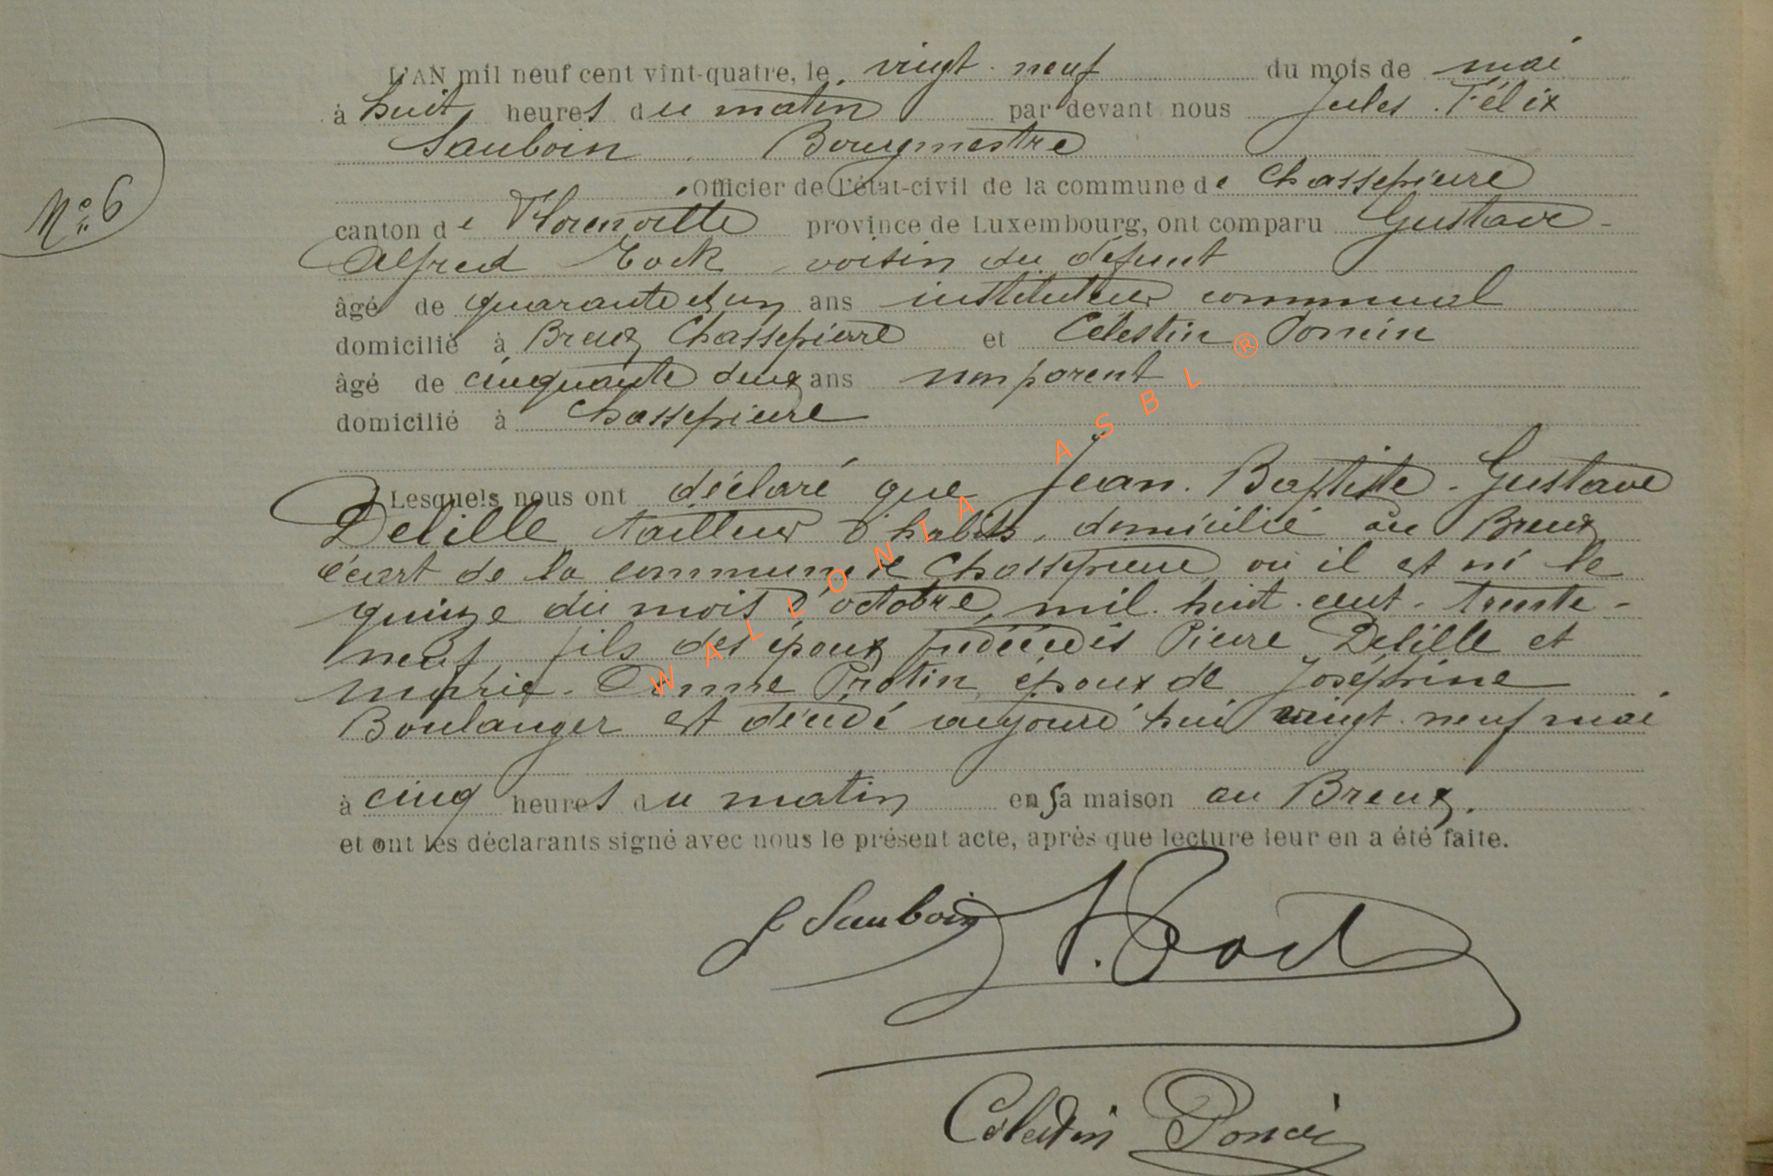 L'AN mil neuf cent vint-quatre, le vingt-neuf du mois de mai
à huit heures du matin par devant nous Jules Félix
Sauboin, Bourgmestre
Officier de l'état-civil de la commune de Chassepierre
N° 6
canton de Florenville province de Luxembourg, ont comparu Gustave-
Alfred Tock voisin du défunt
âgé de quarante et un ans instituteur communal
domicilié à Breux Chassepierre et Célestin Poncin
âgé de cinquante deux ans non parent
domicilié à Chassepierre
Lesquels nous ont déclaré que Jean-Baptiste-Gustave
Delille tailleur d'habits, domicilié au Breux
écart de la commune de Chassepierre où il est né le
quinze du mois d'octobre mil-huit-cent-trente-
neuf, fils des époux prédécédés Pierre Delille et
Marie-Anne Protin, époux de Joséphine
Boulanger est décédé aujourd'hui vingt-neuf mai
à cinq heures du matin en sa maison au Breux.
et ont les déclarants signé avec nous le présent acte, après que lecture leur en a été faite.
J Sauboin Tock
Célestin Poncin
WALLONIA ASBL ®